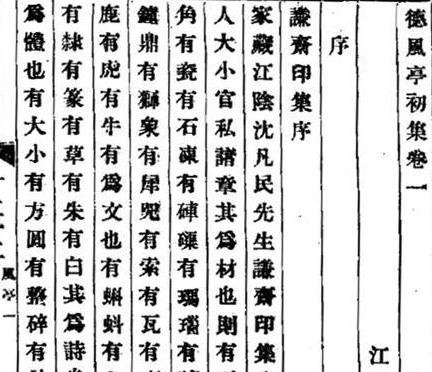 德風亭初集卷一
江
序
謙齋印集序
家藏江陰沈凡民先生謙齋印集
人大小官私諸章其為材也則有
角有瓷有石凍有硨磲有瑪瑙有
鐘鼎有獅象有犀兕有索有瓦有
鹿有虎有牛有為文也有蝌蚪有
有隸有篆有草有朱有白其為詩
為體也有大小有方圓有整碎有
風亭一